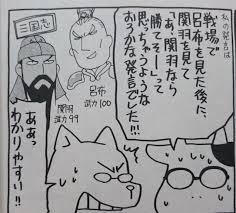 私の発言は
戦場で
呂布を見た後に、
関羽を見て
「あ、関羽なら
勝てそー」って
思っちゃうような
おろかな発言でした!!!
三国志
呂布
武力100
関羽
武力99
ああっ
わかりやすい!!